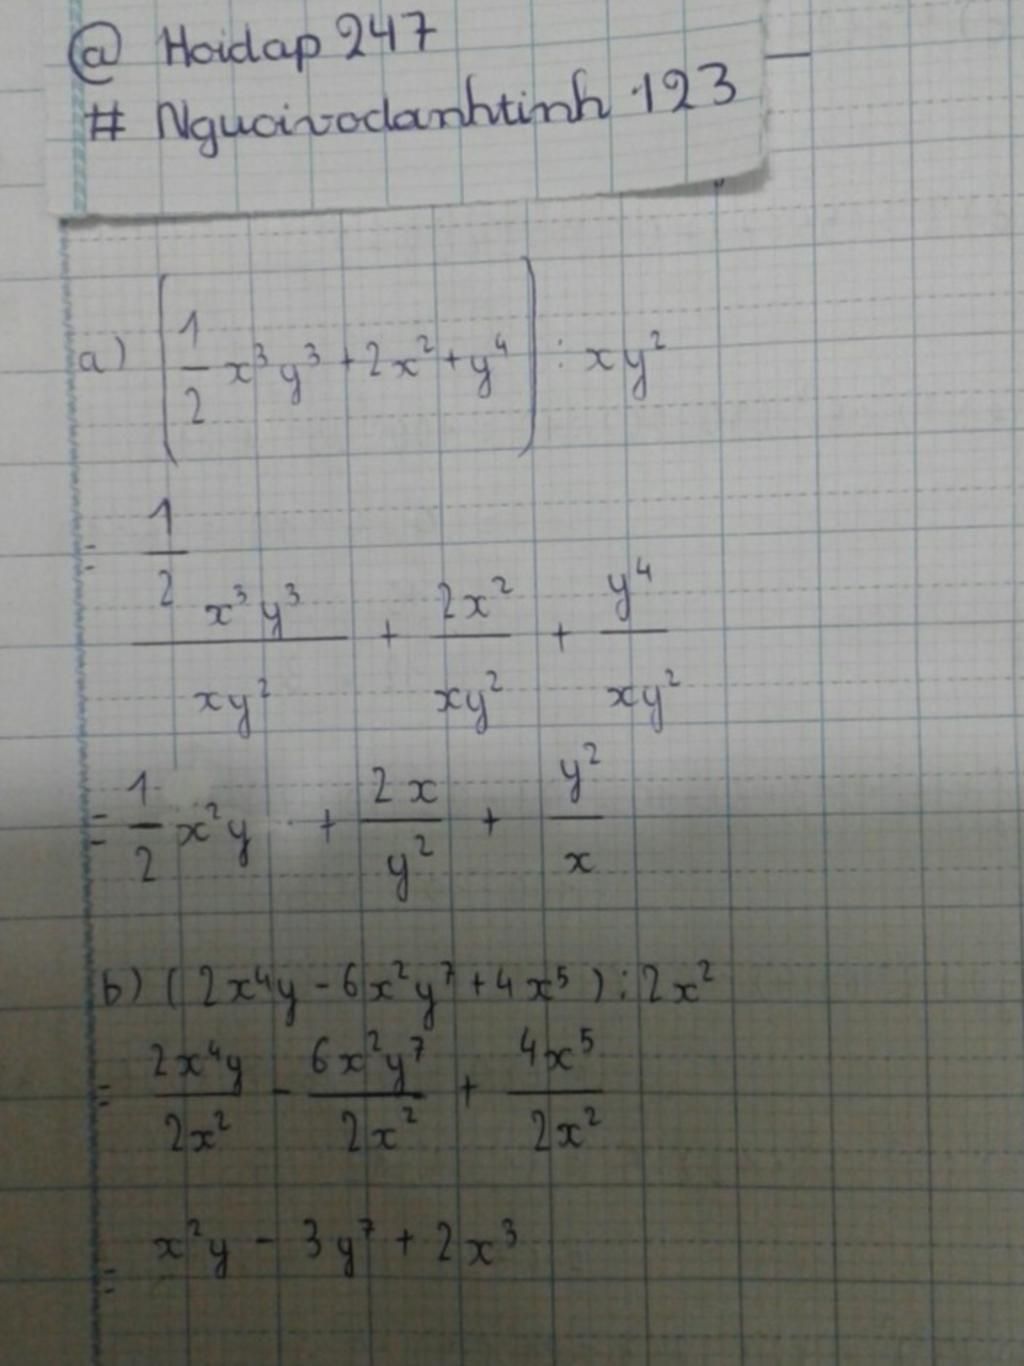 @ Hoidap 247
# Nguoivodanhtinh 123
a) (1/2 x³y³ + 2x² + y⁴) : xy²
= (1/2 x³y³)/(xy²) + (2x²)/(xy²) + y⁴/(xy²)
= 1/2 x²y + 2x/y² + y²/x
b) (2x⁴y - 6x²y⁷ + 4x⁵) : 2x²
= (2x⁴y)/(2x²) - (6x²y⁷)/(2x²) + (4x⁵)/(2x²)
= x²y - 3y⁷ + 2x³